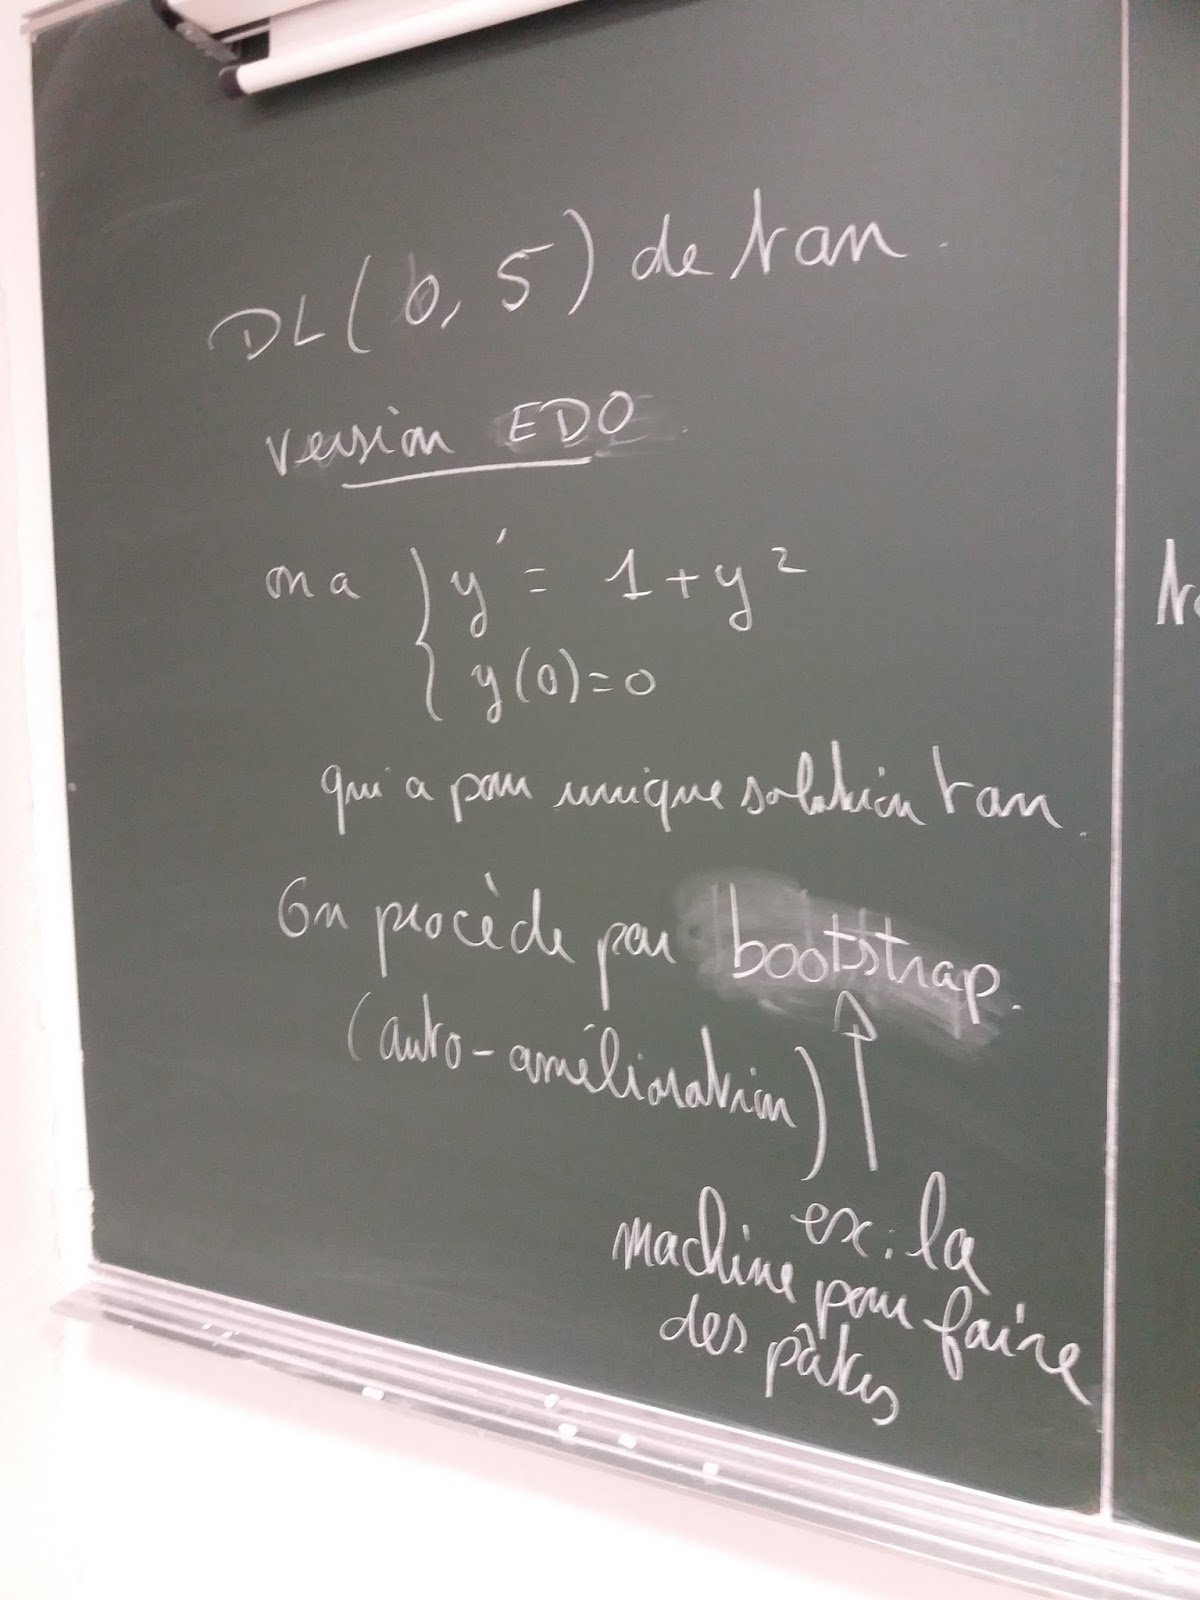 DL(0, 5) de tan.
version EDO.
on a { y' = 1 + y²
y(0) = 0
qui a pour unique solution tan.
On procède par bootstrap.
(auto-amélioration)
ex: la
machine pour faire
des pâtes